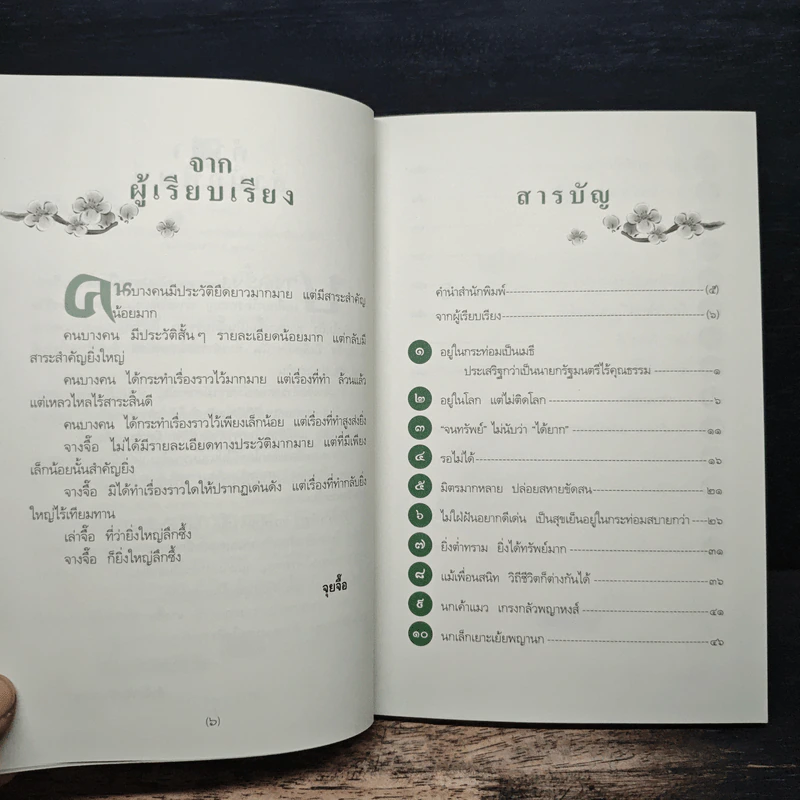 จาก
ผู้เรียบเรียง
คนบางคนมีประวัติยืดยาวมากมาย แต่มีสาระสำคัญ
น้อยมาก
คนบางคน มีประวัติสั้นๆ รายละเอียดน้อยมาก แต่กลับมี
สาระสำคัญยิ่งใหญ่
คนบางคน ได้กระทำเรื่องราวไว้มากมาย แต่เรื่องที่ทำ ล้วนแล้ว
แต่เหลวไหลไร้สาระสิ้นดี
คนบางคน ได้กระทำเรื่องราวไว้เพียงเล็กน้อย แต่เรื่องที่ทำสูงส่งยิ่ง
จางจื๊อ ไม่ได้มีรายละเอียดทางประวัติมากมาย แต่ที่มีเพียง
เล็กน้อยนั้นสำคัญยิ่ง
จางจื๊อ มิได้ทำเรื่องราวใดให้ปรากฏเด่นดัง แต่เรื่องที่ทำกลับยิ่ง
ใหญ่ไร้เทียมทาน
เล่าจื๊อ ที่ว่ายิ่งใหญ่ลึกซึ้ง
จางจื๊อ ก็ยิ่งใหญ่ลึกซึ้ง
จุยจื๊อ
(๖)
สารบัญ
คำนำสำนักพิมพ์ (๕)
จากผู้เรียบเรียง (๖)
๑ อยู่ในกระท่อมเป็นเมธี
ประเสริฐกว่าเป็นนายกรัฐมนตรีไร้คุณธรรม ๑
๒ อยู่ในโลก แต่ไม่ติดโลก ๖
๓ "จนทรัพย์" ไม่นับว่า "ได้ยาก" ๑๑
๔ รอไม่ได้ ๑๖
๕ มิตรมากหลาย ปล่อยสหายขัดสน ๒๑
๖ ไม่ใฝ่ฝันอยากดีเด่น เป็นสุขเย็นอยู่ในกระท่อมสบายกว่า ๒๖
๗ ยิ่งต่ำทราม ยิ่งได้ทรัพย์มาก ๓๑
๘ แม้เพื่อนสนิท วิถีชีวิตก็ต่างกันได้ ๓๖
๙ นกเค้าแมว เกรงกลัวพญาหงส์ ๔๑
๑๐ นกเล็กเยาะเย้ยพญานก ๔๖